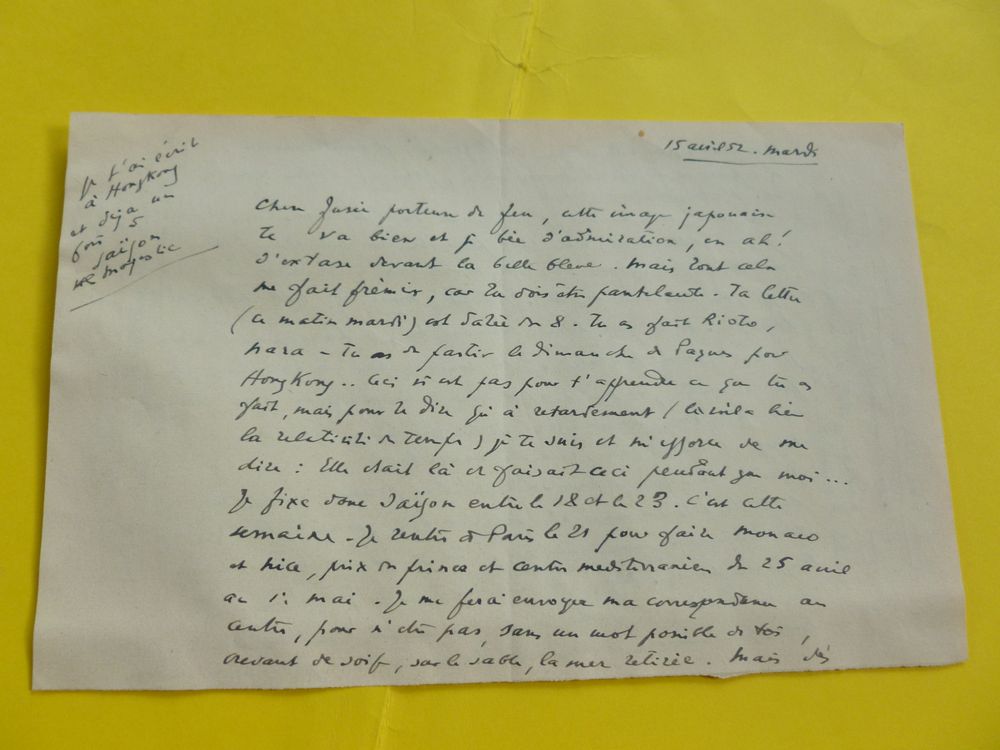 15 avril 52. mardi
Je t'ai écrit
à HongKong
et déjà un
fois 5
Saïgon
Majestic
Chère Josie porteuse de feu, cette image japonaise
te va bien et je bée d'admiration, en ah!
d'extase devant la belle bleue. Mais tout cela
me fait frémir, car tu dois être pantelante. Ta lettre
(ce matin mardi) est datée du 8. Tu as fait Kioto,
Nara - Tu as dû partir le dimanche de Pâques pour
HongKong.. Ceci n'est pas pour t'apprendre ce que tu as
fait, mais pour te dire qu'à retardement (la voilà bien
la relativité du temps) je te suis et m'efforce de me
dire : Elle était là et faisait ceci pendant que moi...
Je fixe donc Saïgon entre le 18 et le 23. C'est cette
semaine. Je rentre à Paris le 21 pour faire Monaco
et Nice, prix du prince et centre méditerranéen du 25 avril
au 1er mai. Je me ferai envoyer ma correspondance au
centre, pour n'être pas, sans un mot possible de toi,
crevant de soif, sur le sable, la mer retirée. Mais dès